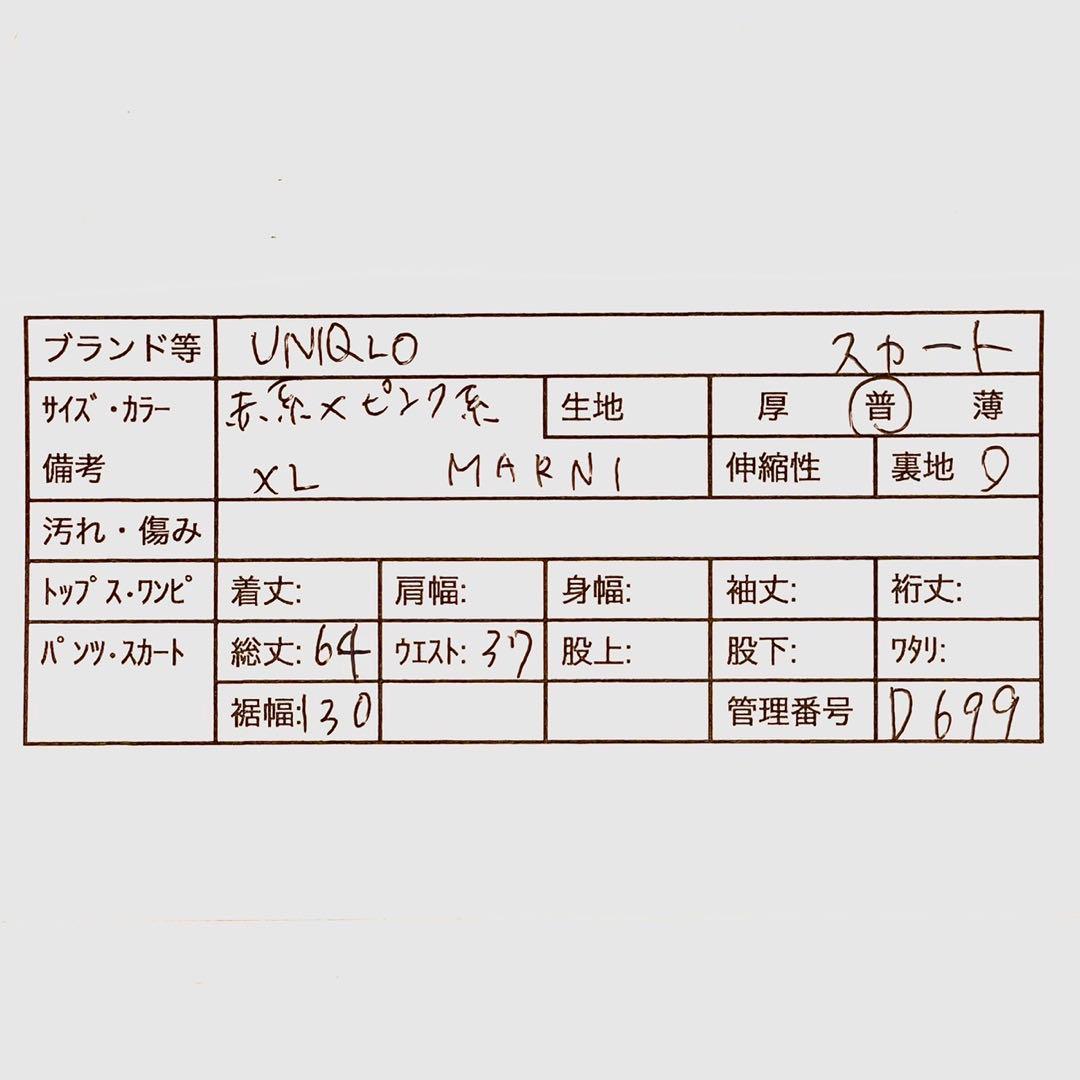 ブランド等 UNIQLO スカート
サイズ・カラー 赤系×ピンク系 生地 厚 普 薄
備考 XL MARNI 伸縮性 裏地 〇
汚れ・傷み
トップス・ワンピ 着丈: 肩幅: 身幅: 袖丈: 裄丈:
パンツ・スカート 総丈:64 ウエスト:37 股上: 股下: ワタリ:
裾幅:130 管理番号 D699